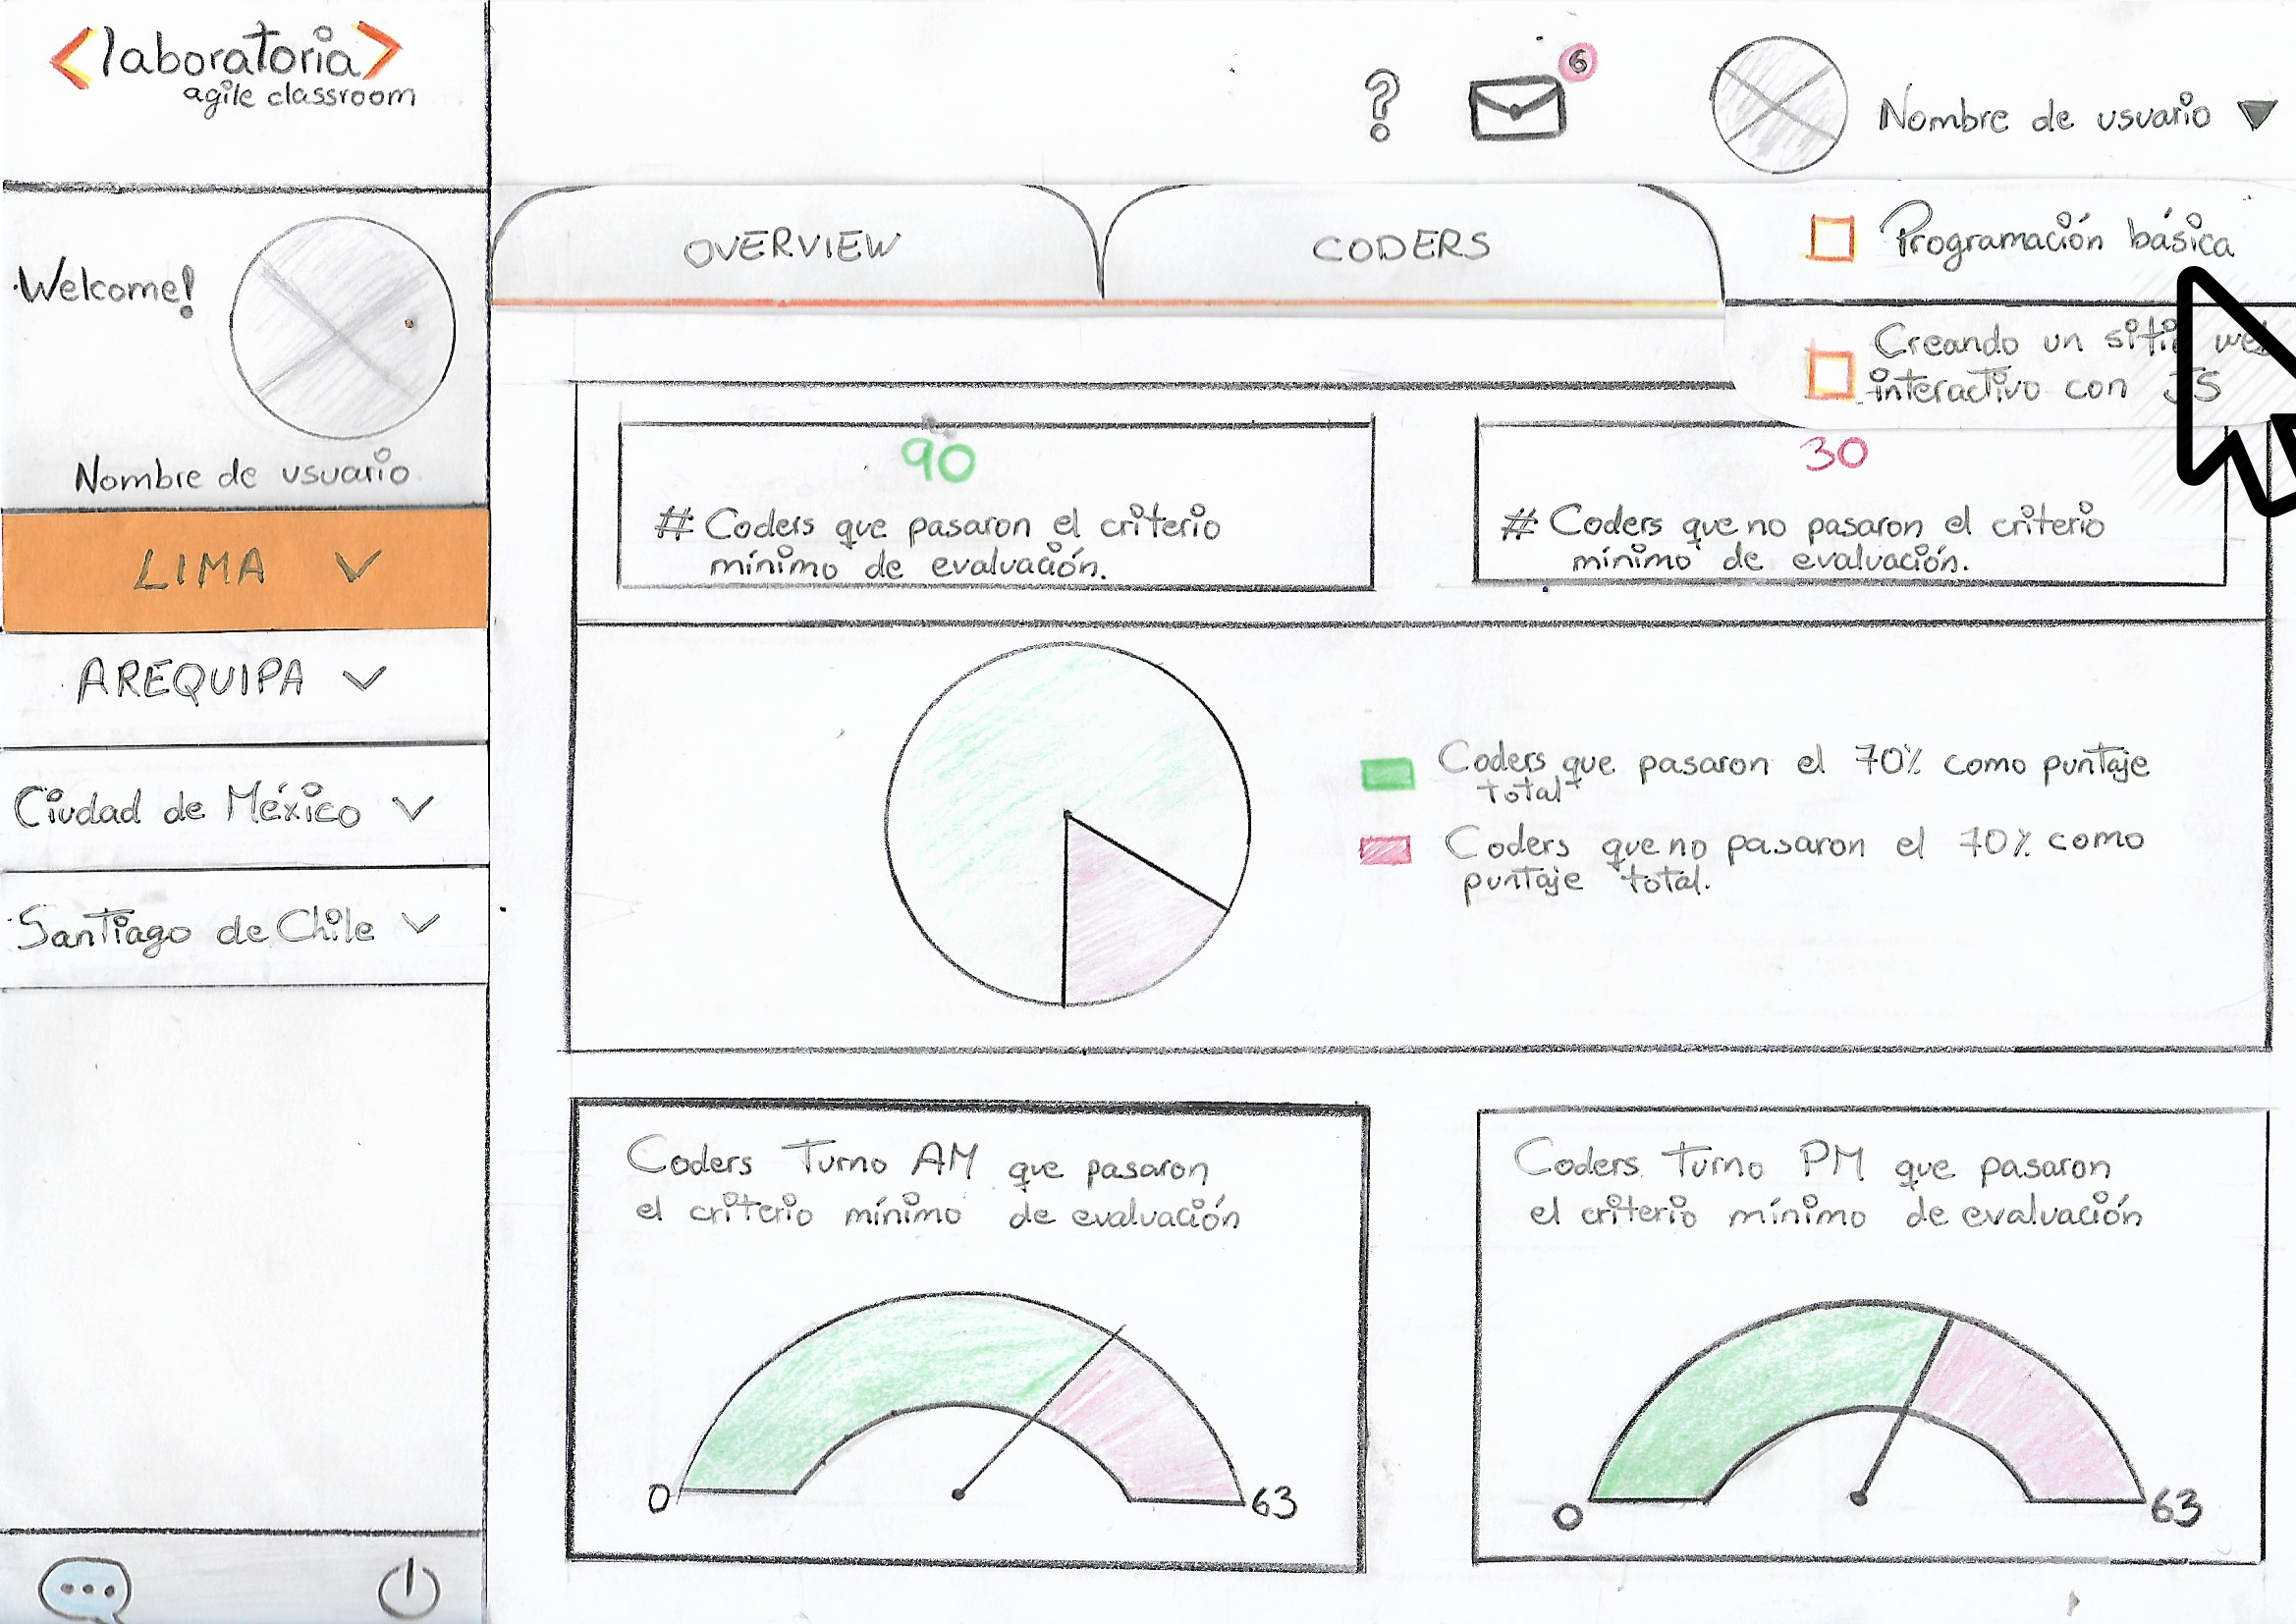 <laboratoria>
agile classroom
?
6
Nombre de usuario
Welcome!
Nombre de usuario
LIMA
AREQUIPA
Ciudad de México
Santiago de Chile
OVERVIEW
CODERS
Programación básica
Creando un sitio web
interactivo con JS
90
# Coders que pasaron el criterio
mínimo de evaluación.
30
# Coders que no pasaron el criterio
mínimo de evaluación.
Coders que pasaron el 70% como puntaje
total
Coders que no pasaron el 70% como
puntaje total.
Coders Turno AM que pasaron
el criterio mínimo de evaluación
0
63
Coders Turno PM que pasaron
el criterio mínimo de evaluación
0
63